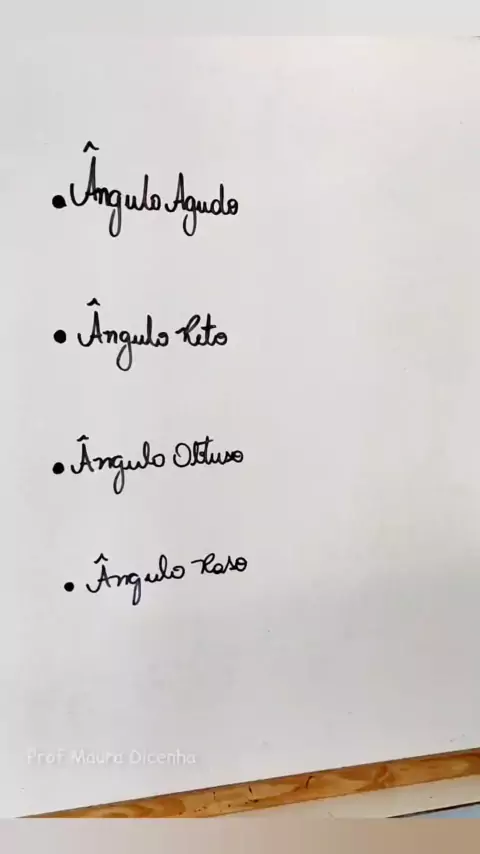 • Ângulo Agudo
• Ângulo Reto
• Ângulo Obtuso
• Ângulo Raso
Prof Maura Dicenha